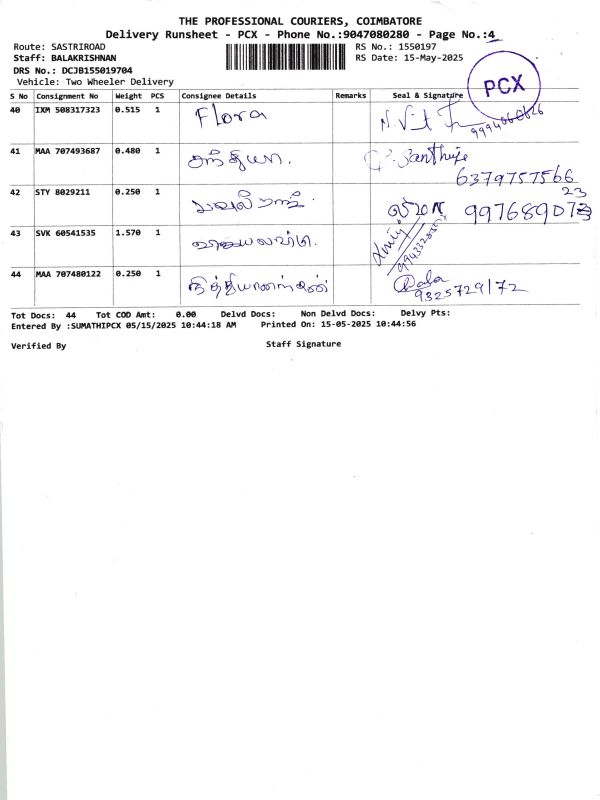 THE PROFESSIONAL COURIERS, COIMBATORE
Delivery Runsheet - PCX - Phone No.:9047080280 - Page No.:4
Route: SASTRIROAD
RS No.: 1550197
Staff: BALAKRISHNAN
RS Date: 15-May-2025
DRS No.: DCJB155019704
Vehicle: Two Wheeler Delivery
PCX
S No Consignment No Weight PCS Consignee Details Remarks Seal & Signature
40 IXM 508317323 0.515 1 Flora
41 MAA 707493687 0.480 1 சந்தியா. 6379757566
42 STY 8029211 0.250 1
43 SVK 60541535 1.570 1
44 MAA 707480122 0.250 1 Bala
9325729172
Tot Docs: 44 Tot COD Amt: 0.00 Delvd Docs: Non Delvd Docs: Delvy Pts:
Entered By :SUMATHIPCX 05/15/2025 10:44:18 AM Printed On: 15-05-2025 10:44:56
Verified By Staff Signature